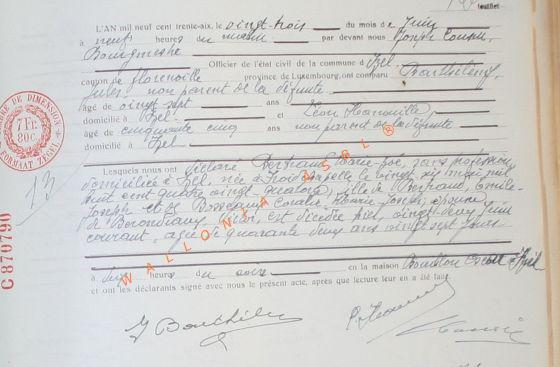 feuillet.
L'AN mil neuf cent trente-six, le vingt-trois du mois de Juin
à neuf heures du matin par devant nous Joseph
Bourgmestre
Officier de l'état civil de la commune d'Izel,
canton de florenville province de Luxembourg, ont comparu Barthélemy,
Jules non parent de la défunte
âgé de vingt sept ans
domicilié à Izel et Léon
âgé de cinquante cinq ans non parent de la défunte
domicilié à Izel
Lesquels nous ont déclaré Bertrand Marie sans profession
domiciliée à Izel, née à le vingt six mai mil
huit cent quatre vingt quatorze, fille de Bertrand, Emile
Joseph et de Marie-Joseph, épouse
de est décédée hier, vingt-deux Juin
courant, âgée de quarante deux ans vingt sept jours
à six heures du soir en la maison Izel
et ont les déclarants signé avec nous le présent acte, après que lecture leur en a été faite.
J Barthélemy
DE DIMENSION
7 Fr.
80 c.
FORMAAT ZEGEL
13
C 870790
WALLONIA ASBL